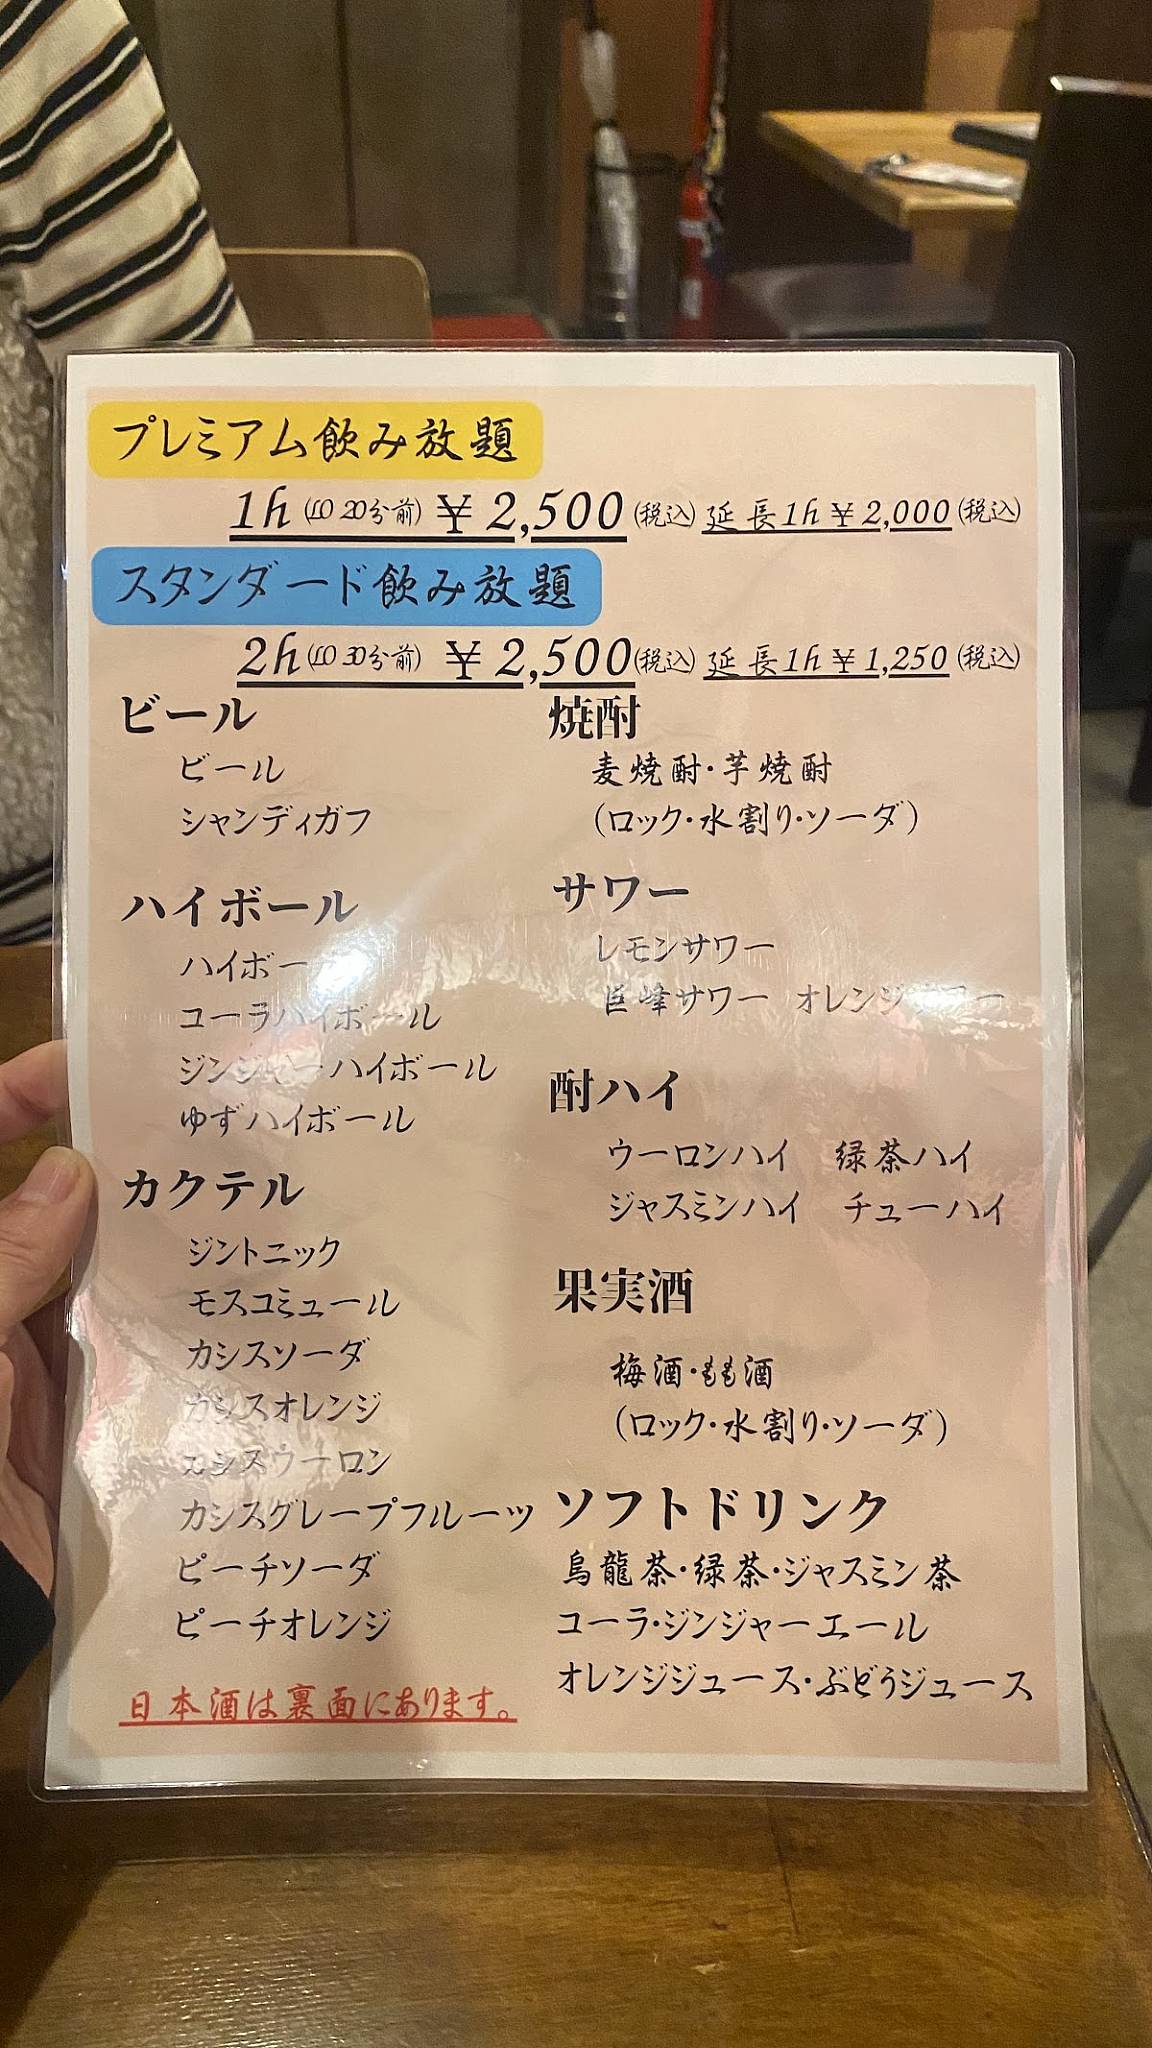 プレミアム飲み放題
1h(LO 20分前) ¥2,500(税込) 延長1h¥2,000(税込)
スタンダード飲み放題
2h(LO 30分前) ¥2,500(税込) 延長1h¥1,250(税込)
ビール
ビール
シャンディガフ
ハイボール
ハイボー
コーラハイボール
ジンジャーハイボール
ゆずハイボール
カクテル
ジントニック
モスコミュール
カシスソーダ
カシスオレンジ
カシスウーロン
カシスグレープフルーツ
ピーチソーダ
ピーチオレンジ
日本酒は裏面にあります。
焼酎
麦焼酎・芋焼酎
(ロック・水割り・ソーダ)
サワー
レモンサワー
巨峰サワー オレンジサワー
酎ハイ
ウーロンハイ 緑茶ハイ
ジャスミンハイ チューハイ
果実酒
梅酒・もも酒
(ロック・水割り・ソーダ)
ソフトドリンク
烏龍茶・緑茶・ジャスミン茶
コーラ・ジンジャーエール
オレンジジュース・ぶどうジュース